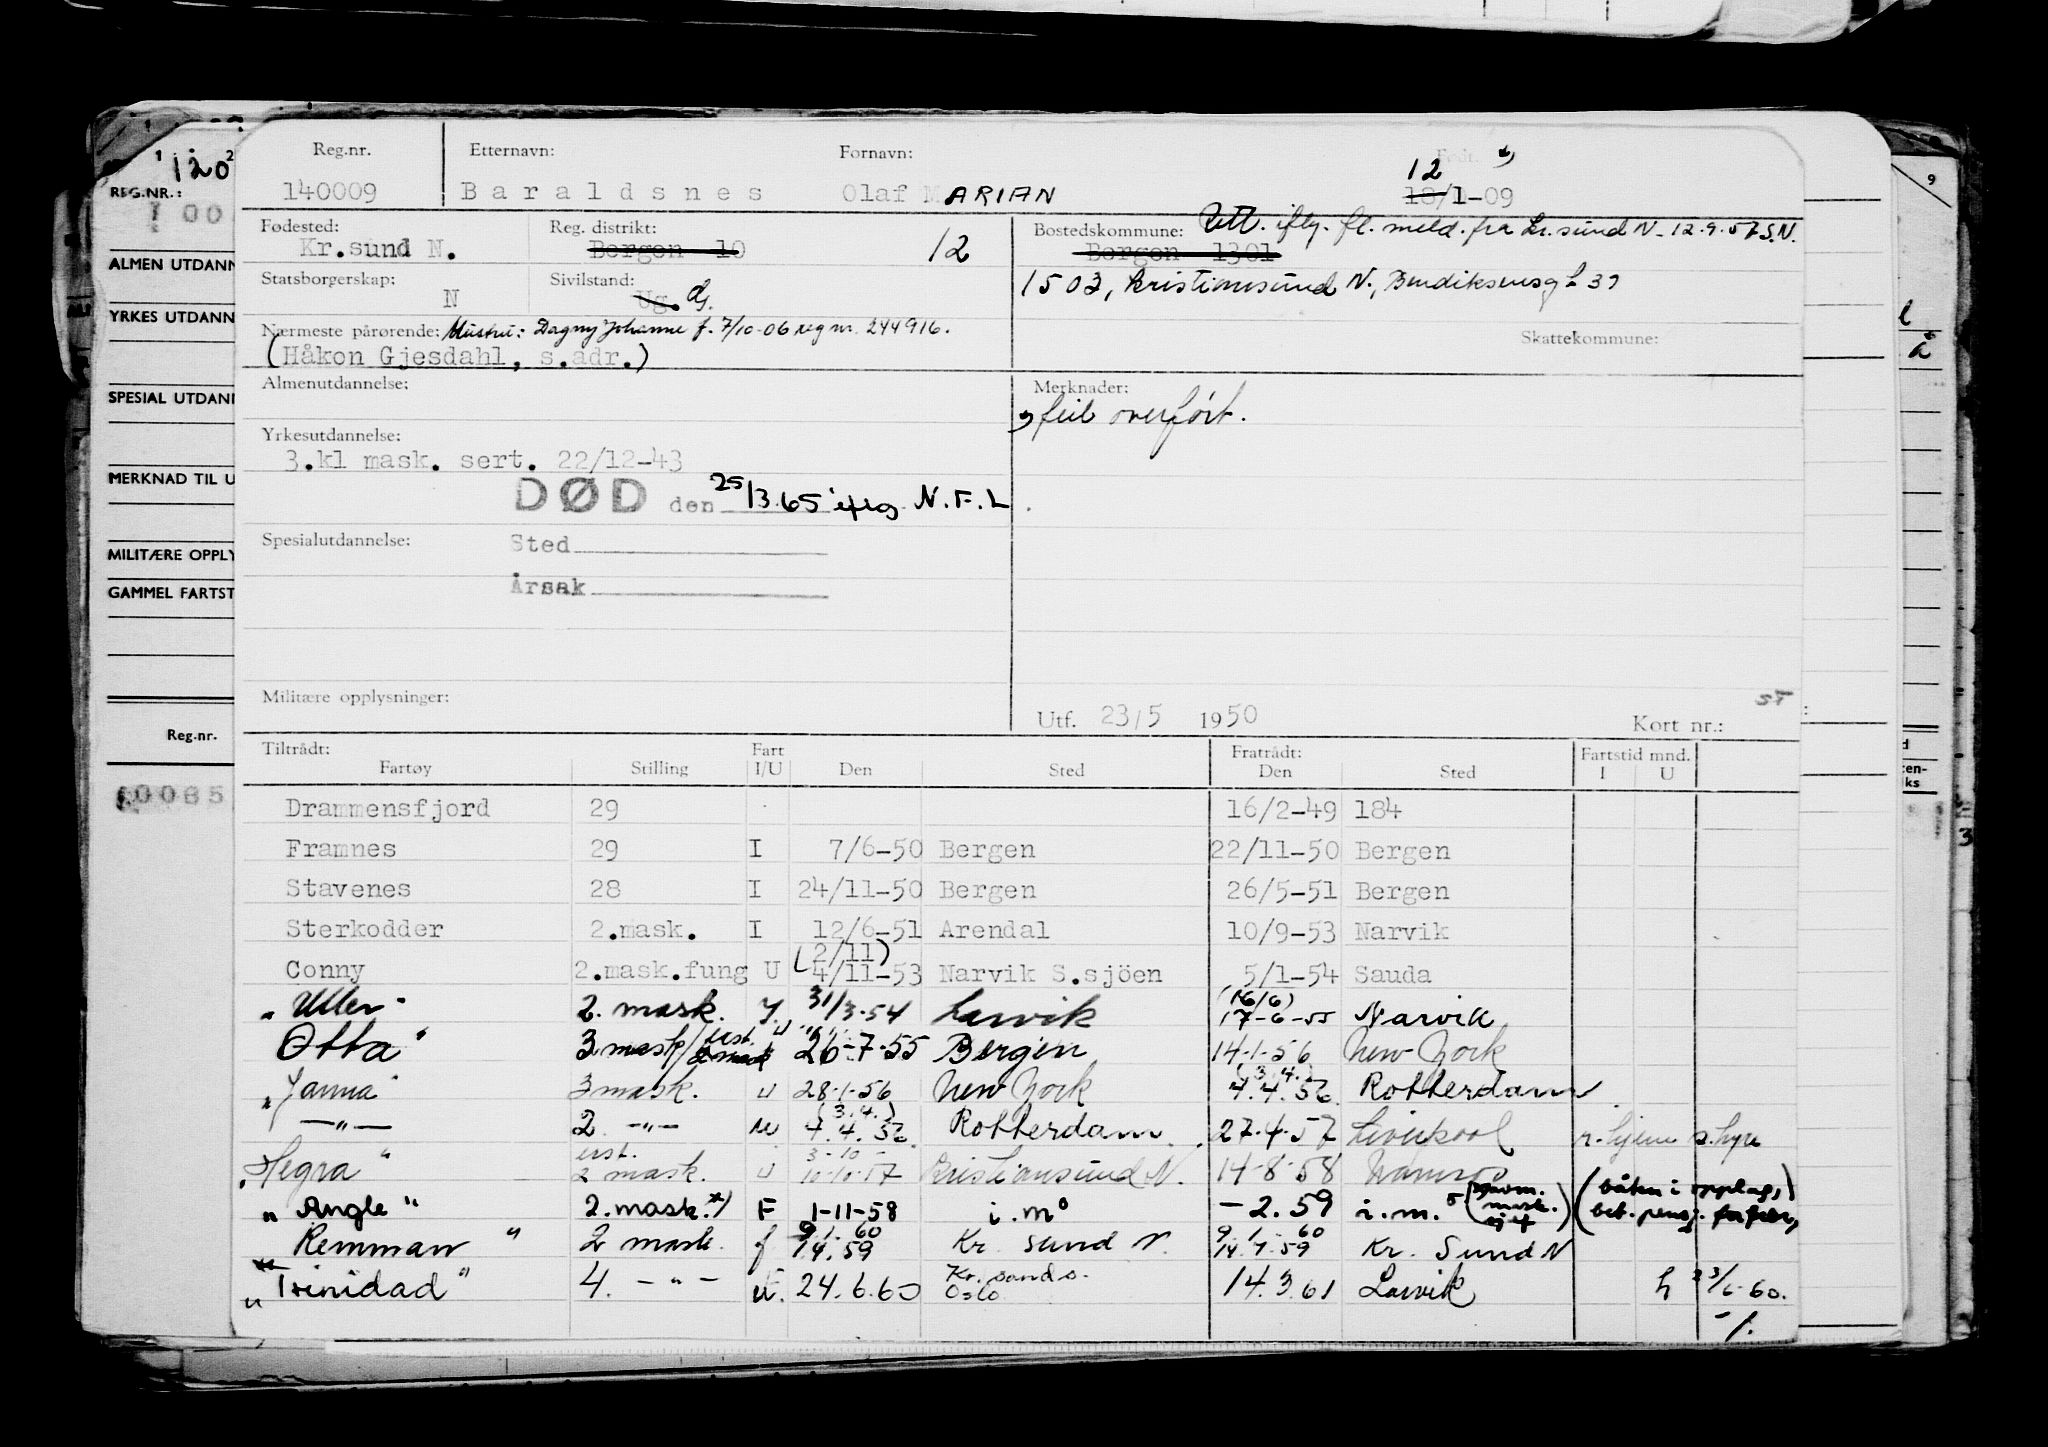 Reg.nr. Etternavn: Fornavn: Født:
140009 Baraldsnes Olaf MARIAN 12 18/1-09
Fødested: Reg. distrikt: Bostedskommune: Utfl. iflg. fl. meld. fra Kr.sund N - 12.9.57 S.N.
Kr.sund N. Bergen 10 12 Bergen 1301
Statsborgerskap: Sivilstand: 1503, Kristiansund N., Bendiksensg
N Ug. G.
Nærmeste pårørende: Hustru: Dagny Johanne f. 7/10-06 reg nr. 244916.
(Håkon Gjesdahl, s.adr.) Skattekommune:
Almenutdannelse: Merknader:
feil overført.
Yrkesutdannelse:
3.kl mask. sert. 22/12-43
DØD den 25/3.65 iflg. N.F.L.
Spesialutdannelse: Sted
Årsak
Militære opplysninger: ST
Utf. 23/5 1950 Kort nr.:
Tiltrådt: Fart Fratrådt: Fartstid mnd.
Fartøy Stilling I/U Den Sted Den Sted I U
Drammensfjord 29 16/2-49 184
Framnes 29 I 7/6-50 Bergen 22/11-50 Bergen
Stavenes 28 I 24/11-50 Bergen 26/5-51 Bergen
Sterkodder 2.mask. I 12/6-51 Arendal 10/9-53 Narvik
(2/11)
Conny 2.mask.fung U 4/11-53 Narvik S.sjöen 5/1-54 Sauda
(16/6)
"Uller" 2. mask. 31/3-54 Larvik 17-6-55 Narvik
Otta" 3 mask/ 2 mask u 26-7-55 Bergen 14-1-56 New York
(3.4.)
"Janna" 3 mask. u 28-1-56 New York 4.4.56 Rotterdam
(3.4.)
—"— 2. —"— u 4.4.56 Rotterdam. 27-4-57 Liverpool r. hjem s. hyre
3-10-
"Hegra" 2 mask. u 10-10-57 Kristiansund N. 14-8-58
"Angle" 2.mask.*) F 1-11-58 i.m° -2.59 i.m.° (båten i opplag,
9.1.60 9.1.60
"Remman" 2 mask. f 14.59 Kr. sund N. 14.7.59 Kr. Sund N
Kr.sand s.
"Trinidad" 4. —"— u. 24.6.60 Oslo 14.3.61 Larvik h 23/6-60.
-/.
120
REG.NR.:
ALMEN UTDANN
YRKES UTDANN
SPESIAL UTDANN
MERKNAD TIL U
MILITÆRE OPPLY
GAMMEL FARTST
Reg.nr.
9